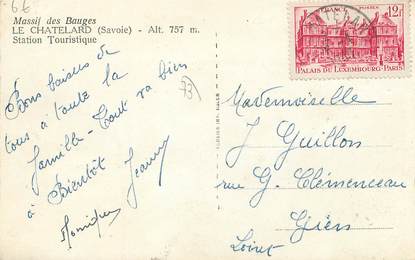 66
Massif des Bauges
LE CHATELARD (Savoie) - Alt. 757 m.
Station Touristique
Bons baisers de
tous à toute la
famille - Tout va bien
à Bientôt Jeanny
Monique
73)
12F
FRANCE POSTES
PALAIS DU LUXEMBOURG-PARIS
Mademoiselle
J Guillon
rue G. Clémenceau
Gien
Loiret